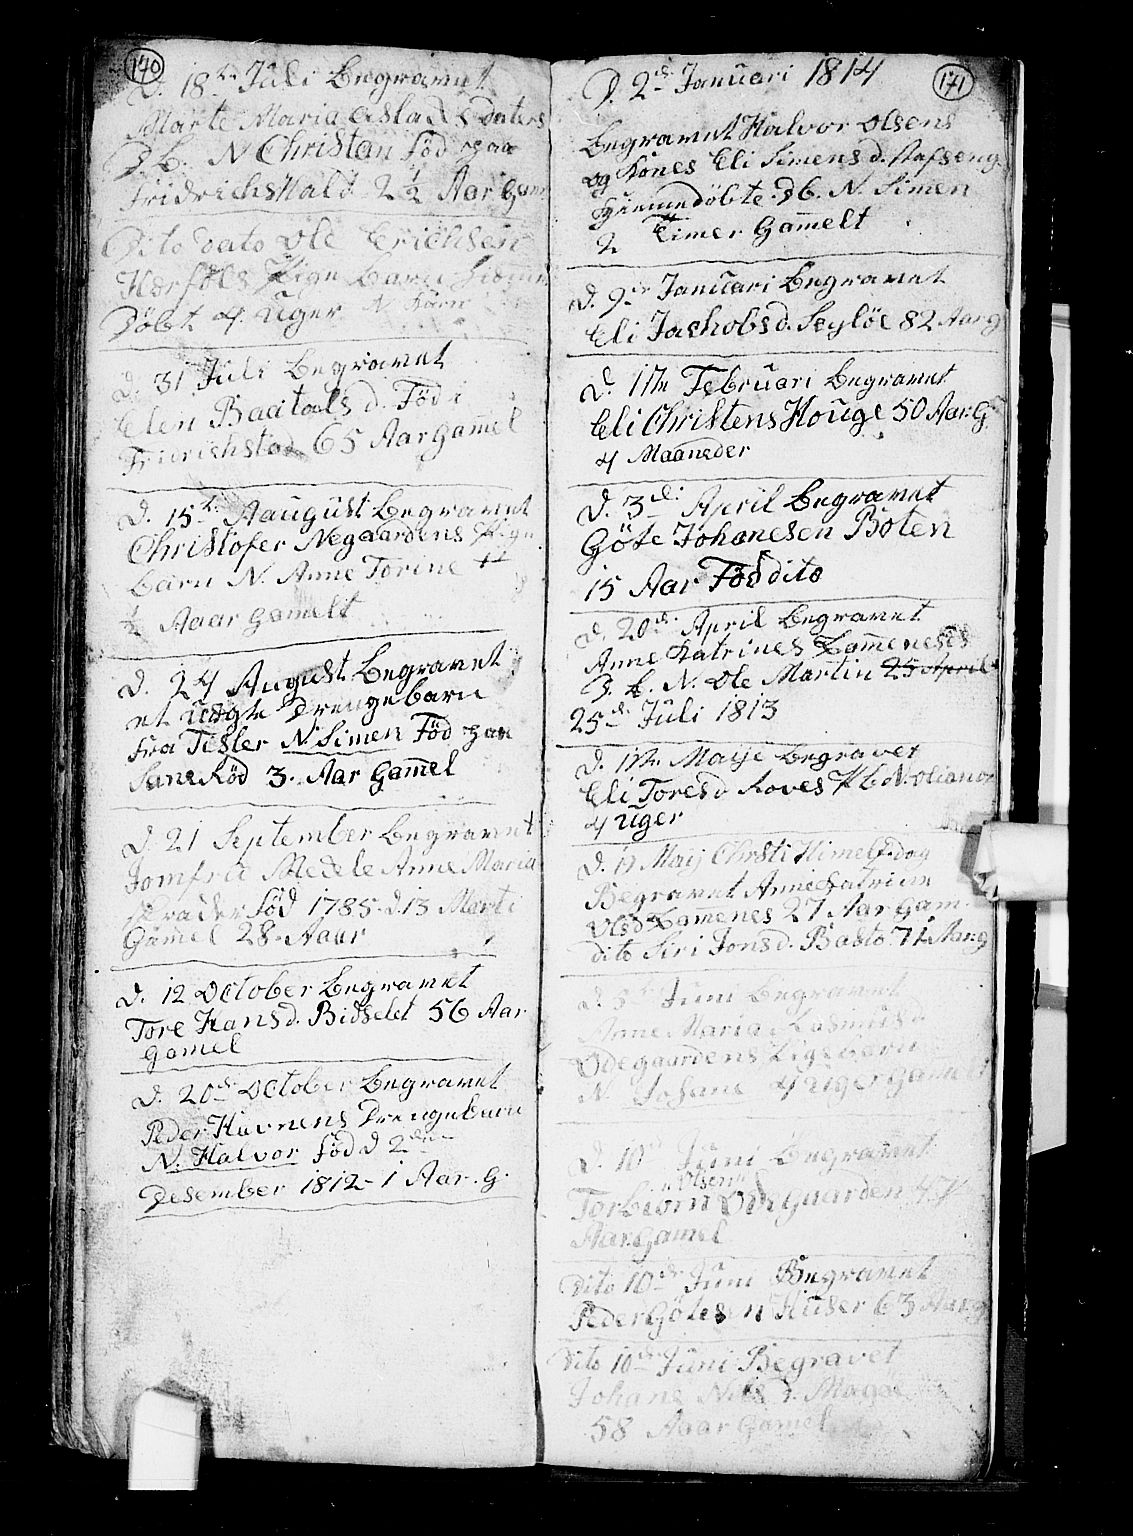 170
D. 18 de Juli Begravet
Marte Maria Aslachs Daters
D. b. N Christan född paa
Fridrichshald 2 1/2 Aar Gam
Dito Dato Ole Erichsen
Pige Barn
Döbt 4. Uger N. Karn
D. 31 Juli Begravet
Elen d. Föd i
65 Aar Gamel
D. 15 de Aaugust Begravet
Christofer Negaardens Pige
Barn N. Anne Torine
1/2 Aaar Gamelt
D. 24 August Begravet
et Uægte Drengebarn
fra Tesler N. Simen Föd paa
3. Aar Gamel
D. 21 September Begravet
Jomfru Medele Anne Maria
föd 1785. d. 13 Marti
Gamel 28. Aaar
D. 12 October Begravet
Tore Hansd. Bidselet 56 Aar
Gamel
D. 20 de October Begravet
Peder Huvnens Drengebarn
N. Halvor föd d 2 den
Desember 1812 - 1 Aar. G.
171
D. 2 de Januari 1814
Begravet Halvor Olsens
og Kones Eli Simens d. Stafseng
Hiemmedöbte D b. N. Simen
2 Timer Gamelt
D. 9 de Januari Begravet
Eli Jachobsd. Seylöe 82 Aar g
D. 17 Februari Begravet
Eli Christens Houge 50 Aar: G
4 Maaneder
D. 3 de April Begravet
Göte Johanesen Boten
15 Aar Föd dito
D. 20 de April Begravet
Anne Katrines
D. b. N. Ole Martin 25 April
25 de Juli 1813
D. Maije Begravet
Eli Toresd Roves P b N. Oliana
4 Uger
D. 19 Maij Christi Himelf. dag
Begravet Anne Katrine
Olsd 27 Aar Gam.
dito Siri Jonsd. Basto 71 Aar. g
D. 5 Juni Begravet
Anne Maria Rasmusd
Ödegaardens Pigebarn
N. Johane 4 Uger Gamelt
D. 10 Juni Begravet
Olsen
Torbiörn Ödeguarden 47
Aar. Gamel
Dito 10 de Juni Begravet
Peder Götesen Huser 63 Aar. g
Dito 10 de Juni Begravet
Johane Nils d. Magöe
58 Aaar Gamel